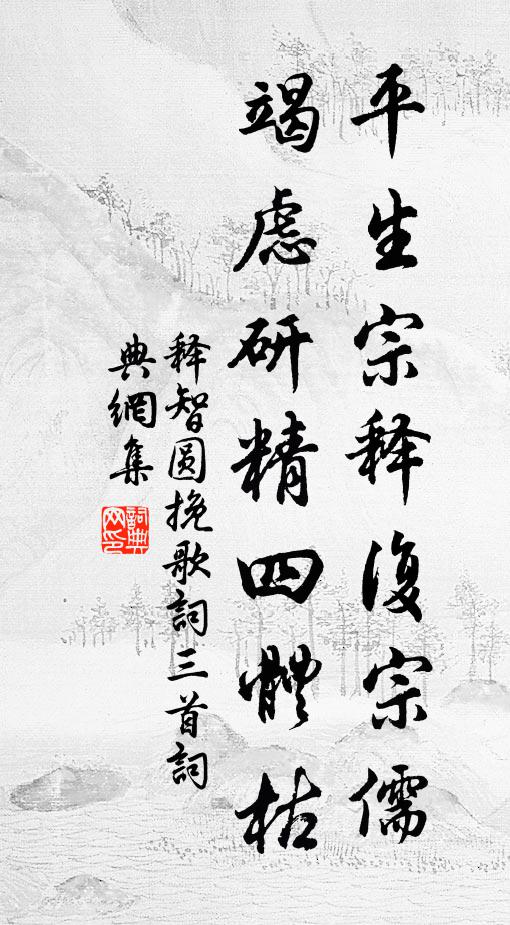 平生宗释復宗儒
竭虑研精四體枯
释智圆挽歌詞三首詞
典網集
詞典
网印